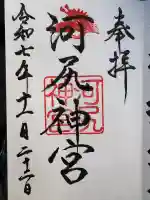 奉拝
河尻神宮
令和七年十一月二十二日